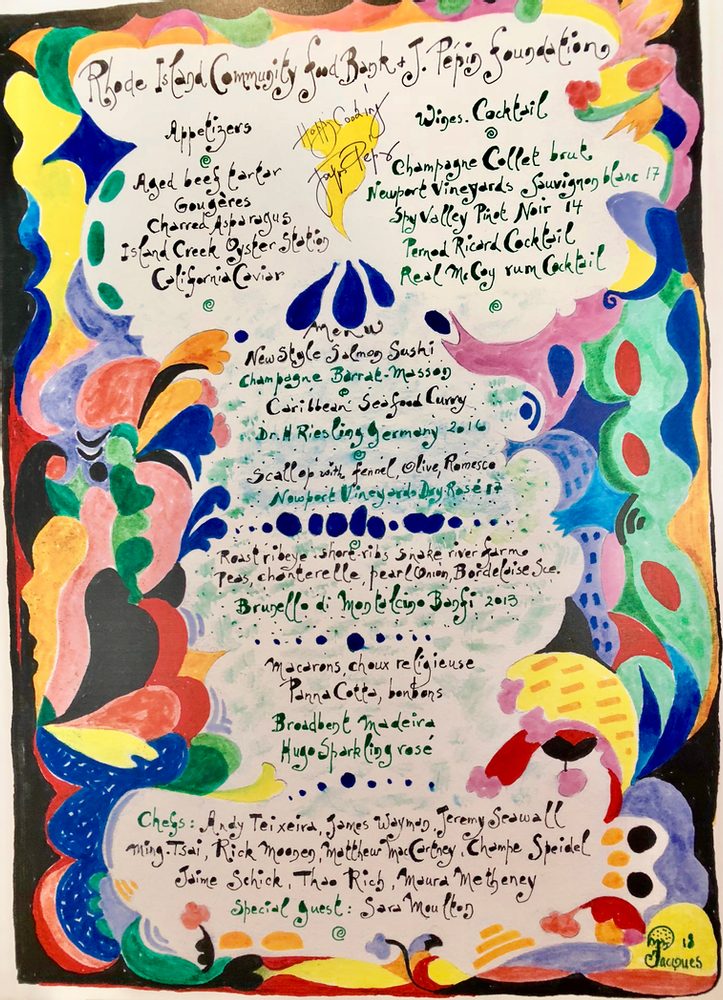 Rhode Island Community food Bank + J. Pépin foundation
Appetizers
Aged beef tartar
Gougères
Charred Asparagus
Island Creek Oyster Station
California Caviar
Happy Cooking!
Jacques Pépin
Wines. Cocktail
Champagne Collet brut
Newport Vineyards Sauvignon blanc 17
Spy Valley Pinot Noir 14
Pernod Ricard Cocktail
Real McCoy rum Cocktail
Menu
New Style Salmon Sushi
Champagne Barrat-Masson
Caribbean Seafood Curry
Dr. H Riesling Germany 2016
Scallop with fennel, Olive, Romesco
Newport Vineyards Dry Rosé 17
Roast ribeye. short ribs snake river farm
Peas, chanterelle, pearl Onion, Bordelaise Sce.
Brunello di Montalcino Banfi 2013
Macarons, choux religieuse
Panna Cotta, bonbons
Broadbent Madeira
Hugo Sparkling rosé
Chefs: Andy Teixeira, James Wayman, Jeremy Seawall
Ming.Tsai, Rick Moonen, Matthew MacCartney, Champe Speidel
Jaime Schick, Thao Rich, Maura Metheney
Special guest: Sara Moulton
18
Jacques